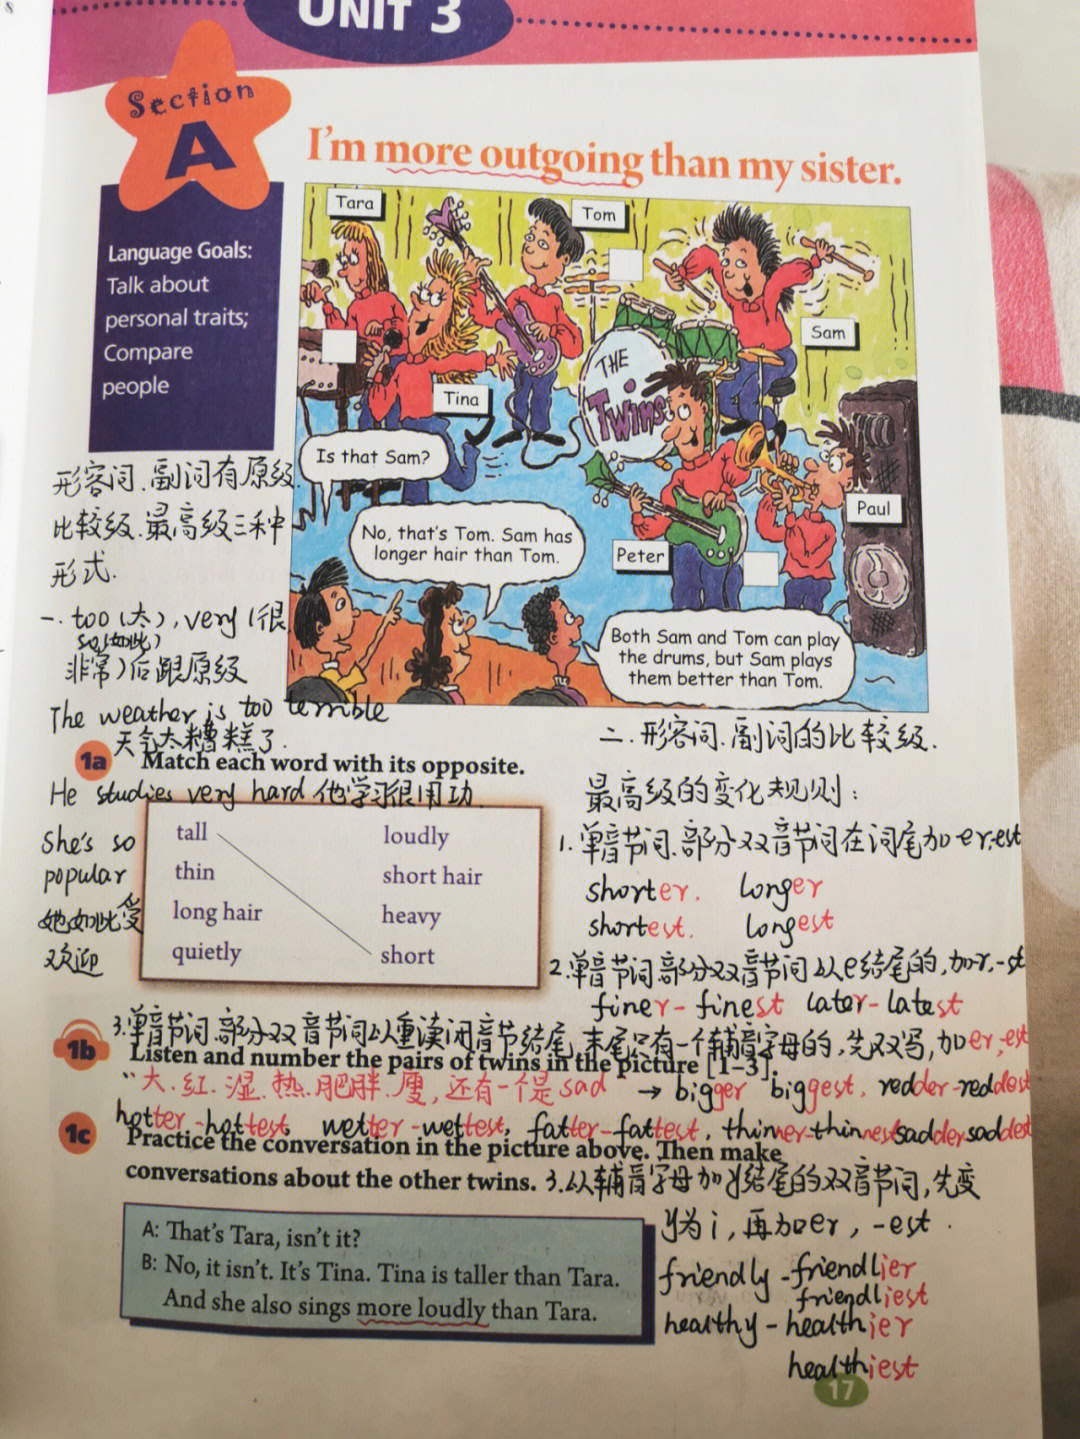 8
UNIT 3
Section
A
I'm more outgoing than my sister.
Language Goals:
Talk about
personal traits;
Compare
people
Tara
Tom
Sam
Tina
THE
Twins
Paul
Peter
Is that Sam?
No, that's Tom. Sam has
longer hair than Tom.
Both Sam and Tom can play
the drums, but Sam plays
them better than Tom.
形容词、副词有原级
比较级、最高级三种
形式.
一. too (太), very (很
so(如此)
非常)后跟原级
The weather is too terrible
天气太糟糕了.
1a Match each word with its opposite.
He studies very hard 他学习很用功
She's so
popular
她如此受
欢迎
tall loudly
thin short hair
long hair heavy
quietly short
二. 形容词、副词的比较级.
最高级的变化规则:
1. 单音节词、部分双音节词在词尾加er,est
shorter. longer
shortest. longest
2.单音节词部分双音节词以e结尾的,加-r,-st
finer- finest later-latest
3.单音节词、部分双音节词以重读闭音节结尾,末尾只有一个辅音字母的,先双写,加er,est
1b Listen and number the pairs of twins in the picture [1–3].
“大、红、湿、热、肥胖、瘦,还有一个是sad → bigger biggest, redder-reddest
hotter-hottest, wetter-wettest, fatter-fattest, thinner-thinnest sadder saddest
1c Practice the conversation in the picture above. Then make
conversations about the other twins.
3.以辅音字母加y结尾的双音节词,先变
y为i,再加er, -est.
friendly -friendlier
friendliest
healthy - healthier
healthiest
A: That's Tara, isn't it?
B: No, it isn't. It's Tina. Tina is taller than Tara.
And she also sings more loudly than Tara.
17